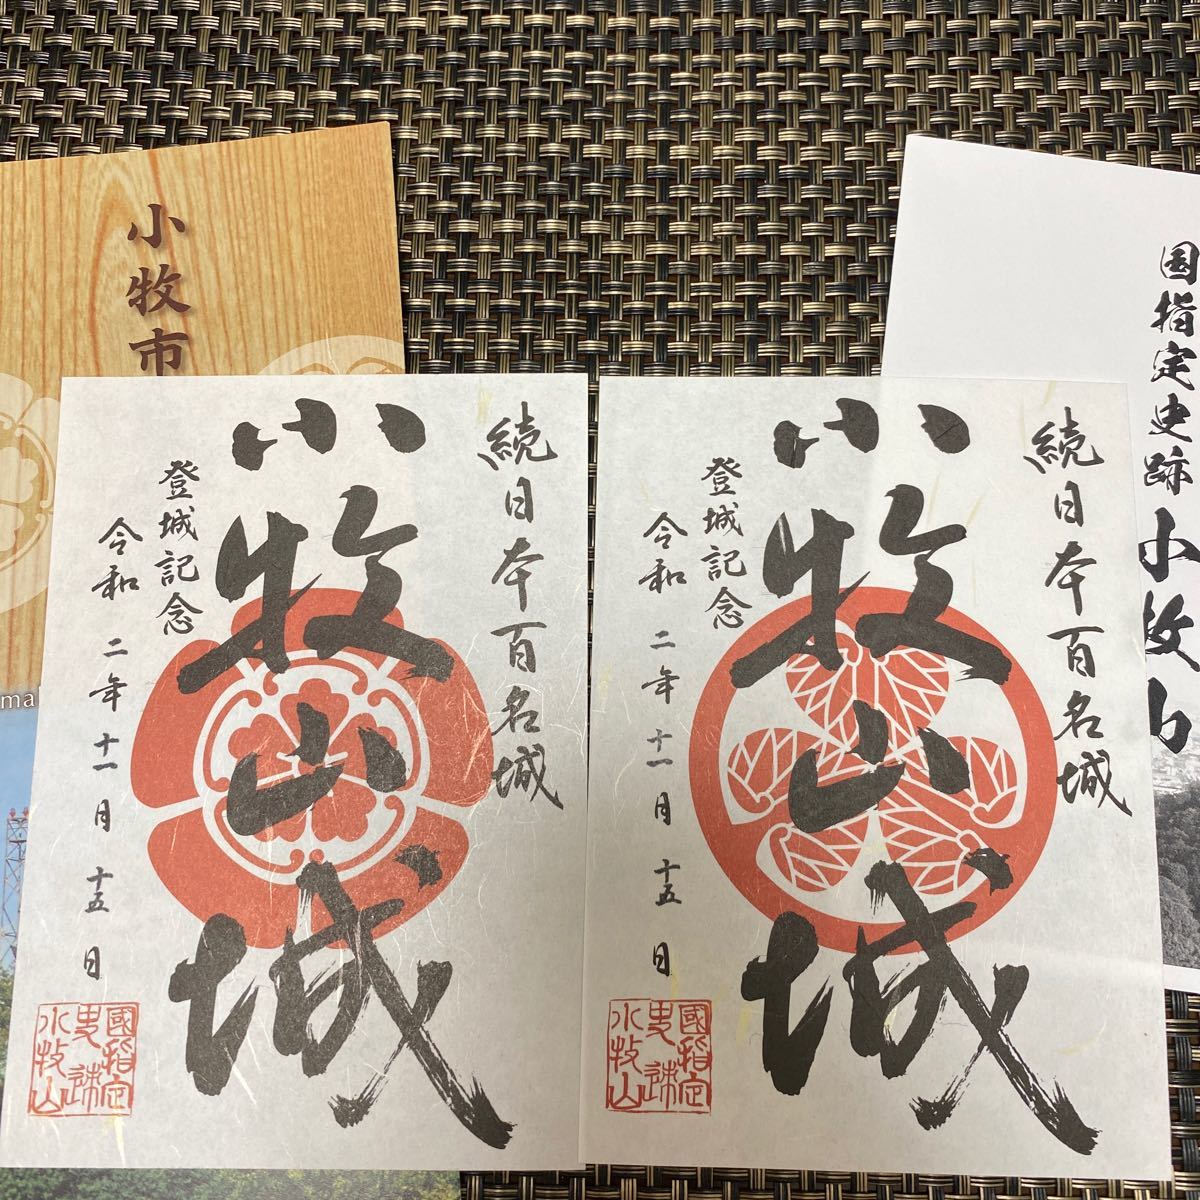 小牧市
ma
国指定史跡小牧山
続日本百名城
小牧山城
登城記念
令和二年十一月十五日
國指定
史跡
小牧山
続日本百名城
小牧山城
登城記念
令和二年十一月十五日
國指定
史跡
小牧山